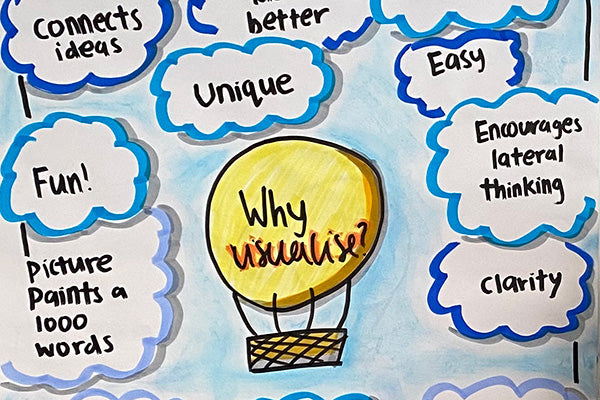 Connects
ideas
better
Unique
Easy
Encourages
lateral
thinking
Fun!
Why
visualise?
picture
paints a
1000
words
clarity